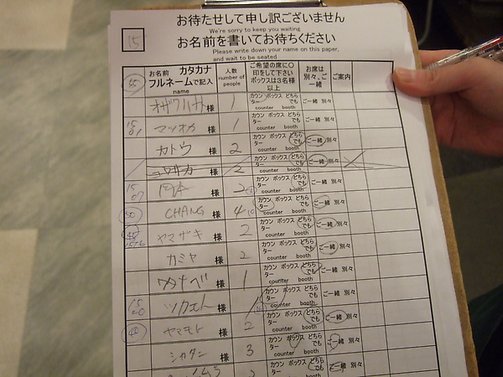 お待たせして申し訳ございません
We're sorry to keep you waiting
15
お名前を書いてお待ちください
Please write down your name on this paper,
and wait to be seated
お名前 カタカナ フルネームで記入 name
人数 number of people
ご希望の席に〇印をして下さい ボックスは3名様以上
お席は別々、ご一緒
ご案内
様 1 カウンター ボックス どちらでも counter booth ご一緒 別々
マツオカ 様 1 カウンター ボックス どちらでも counter booth ご一緒 別々
カトウ 様 2 カウンター ボックス どちらでも counter booth ご一緒 別々
様 2 カウンター ボックス どちらでも counter booth ご一緒 別々
岡本 様 2 カウンター ボックス どちらでも counter booth ご一緒 別々
CHANG 様 4 カウンター ボックス どちらでも counter booth ご一緒 別々
ヤマザキ 様 2 カウンター ボックス どちらでも counter booth ご一緒 別々
カミヤ 様 2 カウンター ボックス どちらでも counter booth ご一緒 別々
ワタナベ 様 1 カウンター ボックス どちらでも counter booth ご一緒 別々
様 1 カウンター ボックス どちらでも counter booth ご一緒 別々
ヤマモト 様 2 カウンター ボックス どちらでも counter booth ご一緒 別々
様 3 カウンター ボックス どちらでも counter booth ご一緒 別々